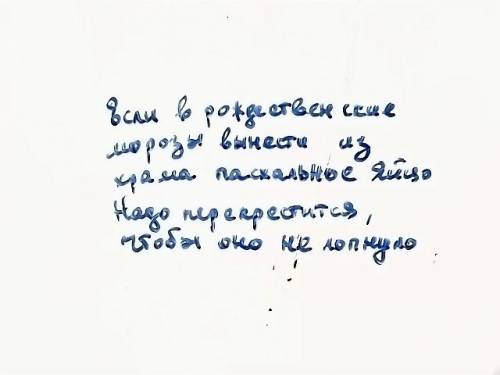 Если в рождественские
морозы вынести из
храма пасхальное яйцо
Надо перекрестится,
чтобы оно не лопнуло